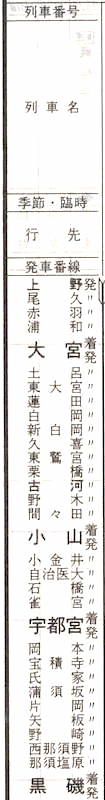 列車番号
列車名
季節・臨時
行先
発車番線
上野発
尾久〃
赤羽〃
浦和〃
大宮着発
土呂〃
東大宮〃
蓮田〃
白岡〃
新白岡〃
久喜〃
東鷲宮〃
栗橋〃
古河〃
野木〃
間々田〃
小山着発
小金井〃
自治医大〃
石橋〃
雀宮〃
宇都宮着発
岡本〃
宝積寺〃
氏家〃
蒲須坂〃
片岡〃
矢板〃
野崎〃
西那須野〃
那須塩原〃
黒磯着発